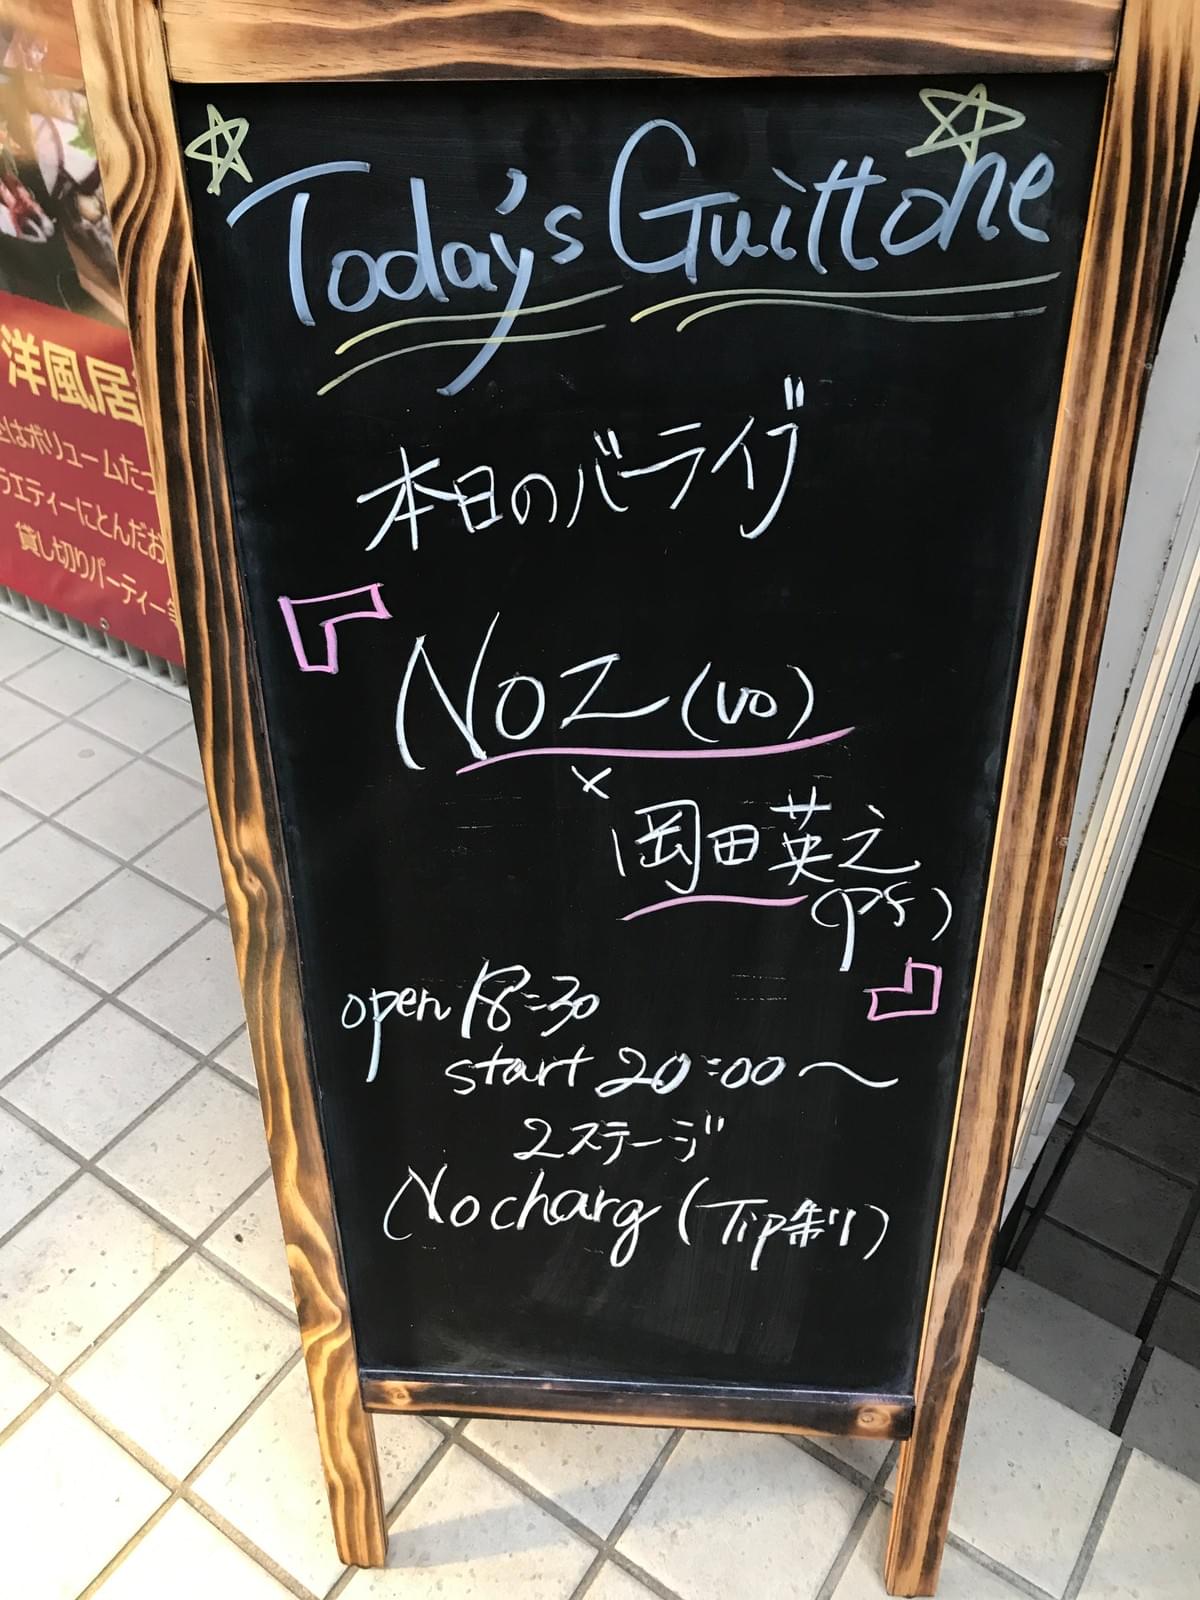 Today's Guittone
本日のバーライブ
Noz (vo)
×
岡田英之
(pf)
open 18:30
start 20:00〜
2ステージ
No charg (Tip制)
洋風居
はボリュームたっ
ラエティーにとんだお
貸し切りパーティー等